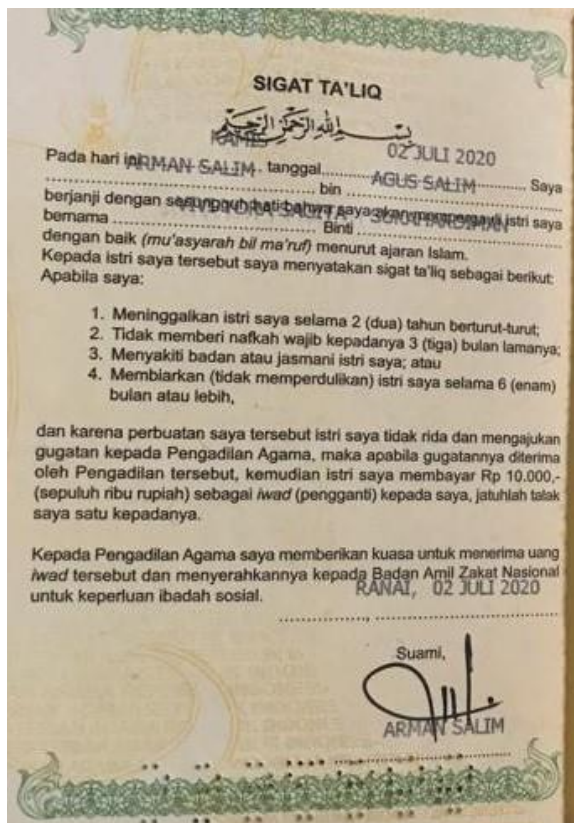 SIGAT TA'LIQ
بسم الله الرحمن الرحيم
KAMIS 02 JULI 2020
Pada hari ini ARMAN SALIM tanggal AGUS SALIM Saya
bin
berjanji dengan sesungguh hati bahwa saya akan mempergauli istri saya
bernama Binti
dengan baik (mu'asyarah bil ma'ruf) menurut ajaran Islam.
Kepada istri saya tersebut saya menyatakan sigat ta'liq sebagai berikut:
Apabila saya:
1. Meninggalkan istri saya selama 2 (dua) tahun berturut-turut;
2. Tidak memberi nafkah wajib kepadanya 3 (tiga) bulan lamanya;
3. Menyakiti badan atau jasmani istri saya; atau
4. Membiarkan (tidak memperdulikan) istri saya selama 6 (enam)
bulan atau lebih,
dan karena perbuatan saya tersebut istri saya tidak rida dan mengajukan
gugatan kepada Pengadilan Agama, maka apabila gugatannya diterima
oleh Pengadilan tersebut, kemudian istri saya membayar Rp 10.000,-
(sepuluh ribu rupiah) sebagai iwad (pengganti) kepada saya, jatuhlah talak
saya satu kepadanya.
Kepada Pengadilan Agama saya memberikan kuasa untuk menerima uang
iwad tersebut dan menyerahkannya kepada Badan Amil Zakat Nasional
untuk keperluan ibadah sosial.
RANAI, 02 JULI 2020
Suami,
ARMAN SALIM